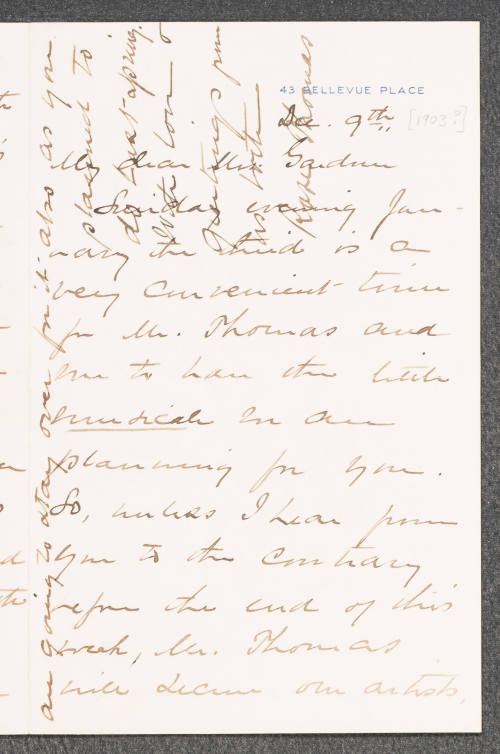 43 BELLEVUE PLACE
Dec. 9th, [1903?]
My dear Mrs Gardner
Sunday evening Jan-
uary the third is a
very convenient time
for Mr. Thomas and
me to have the little
musicale we are
planning for you.
So, unless I hear from
you to the contrary
before the end of this
week, Mr. Thomas
will secure our artists,
are going to stay over for it - also as you
seemed to
last spring.
With love &
greetings from
us both
Rose Thomas